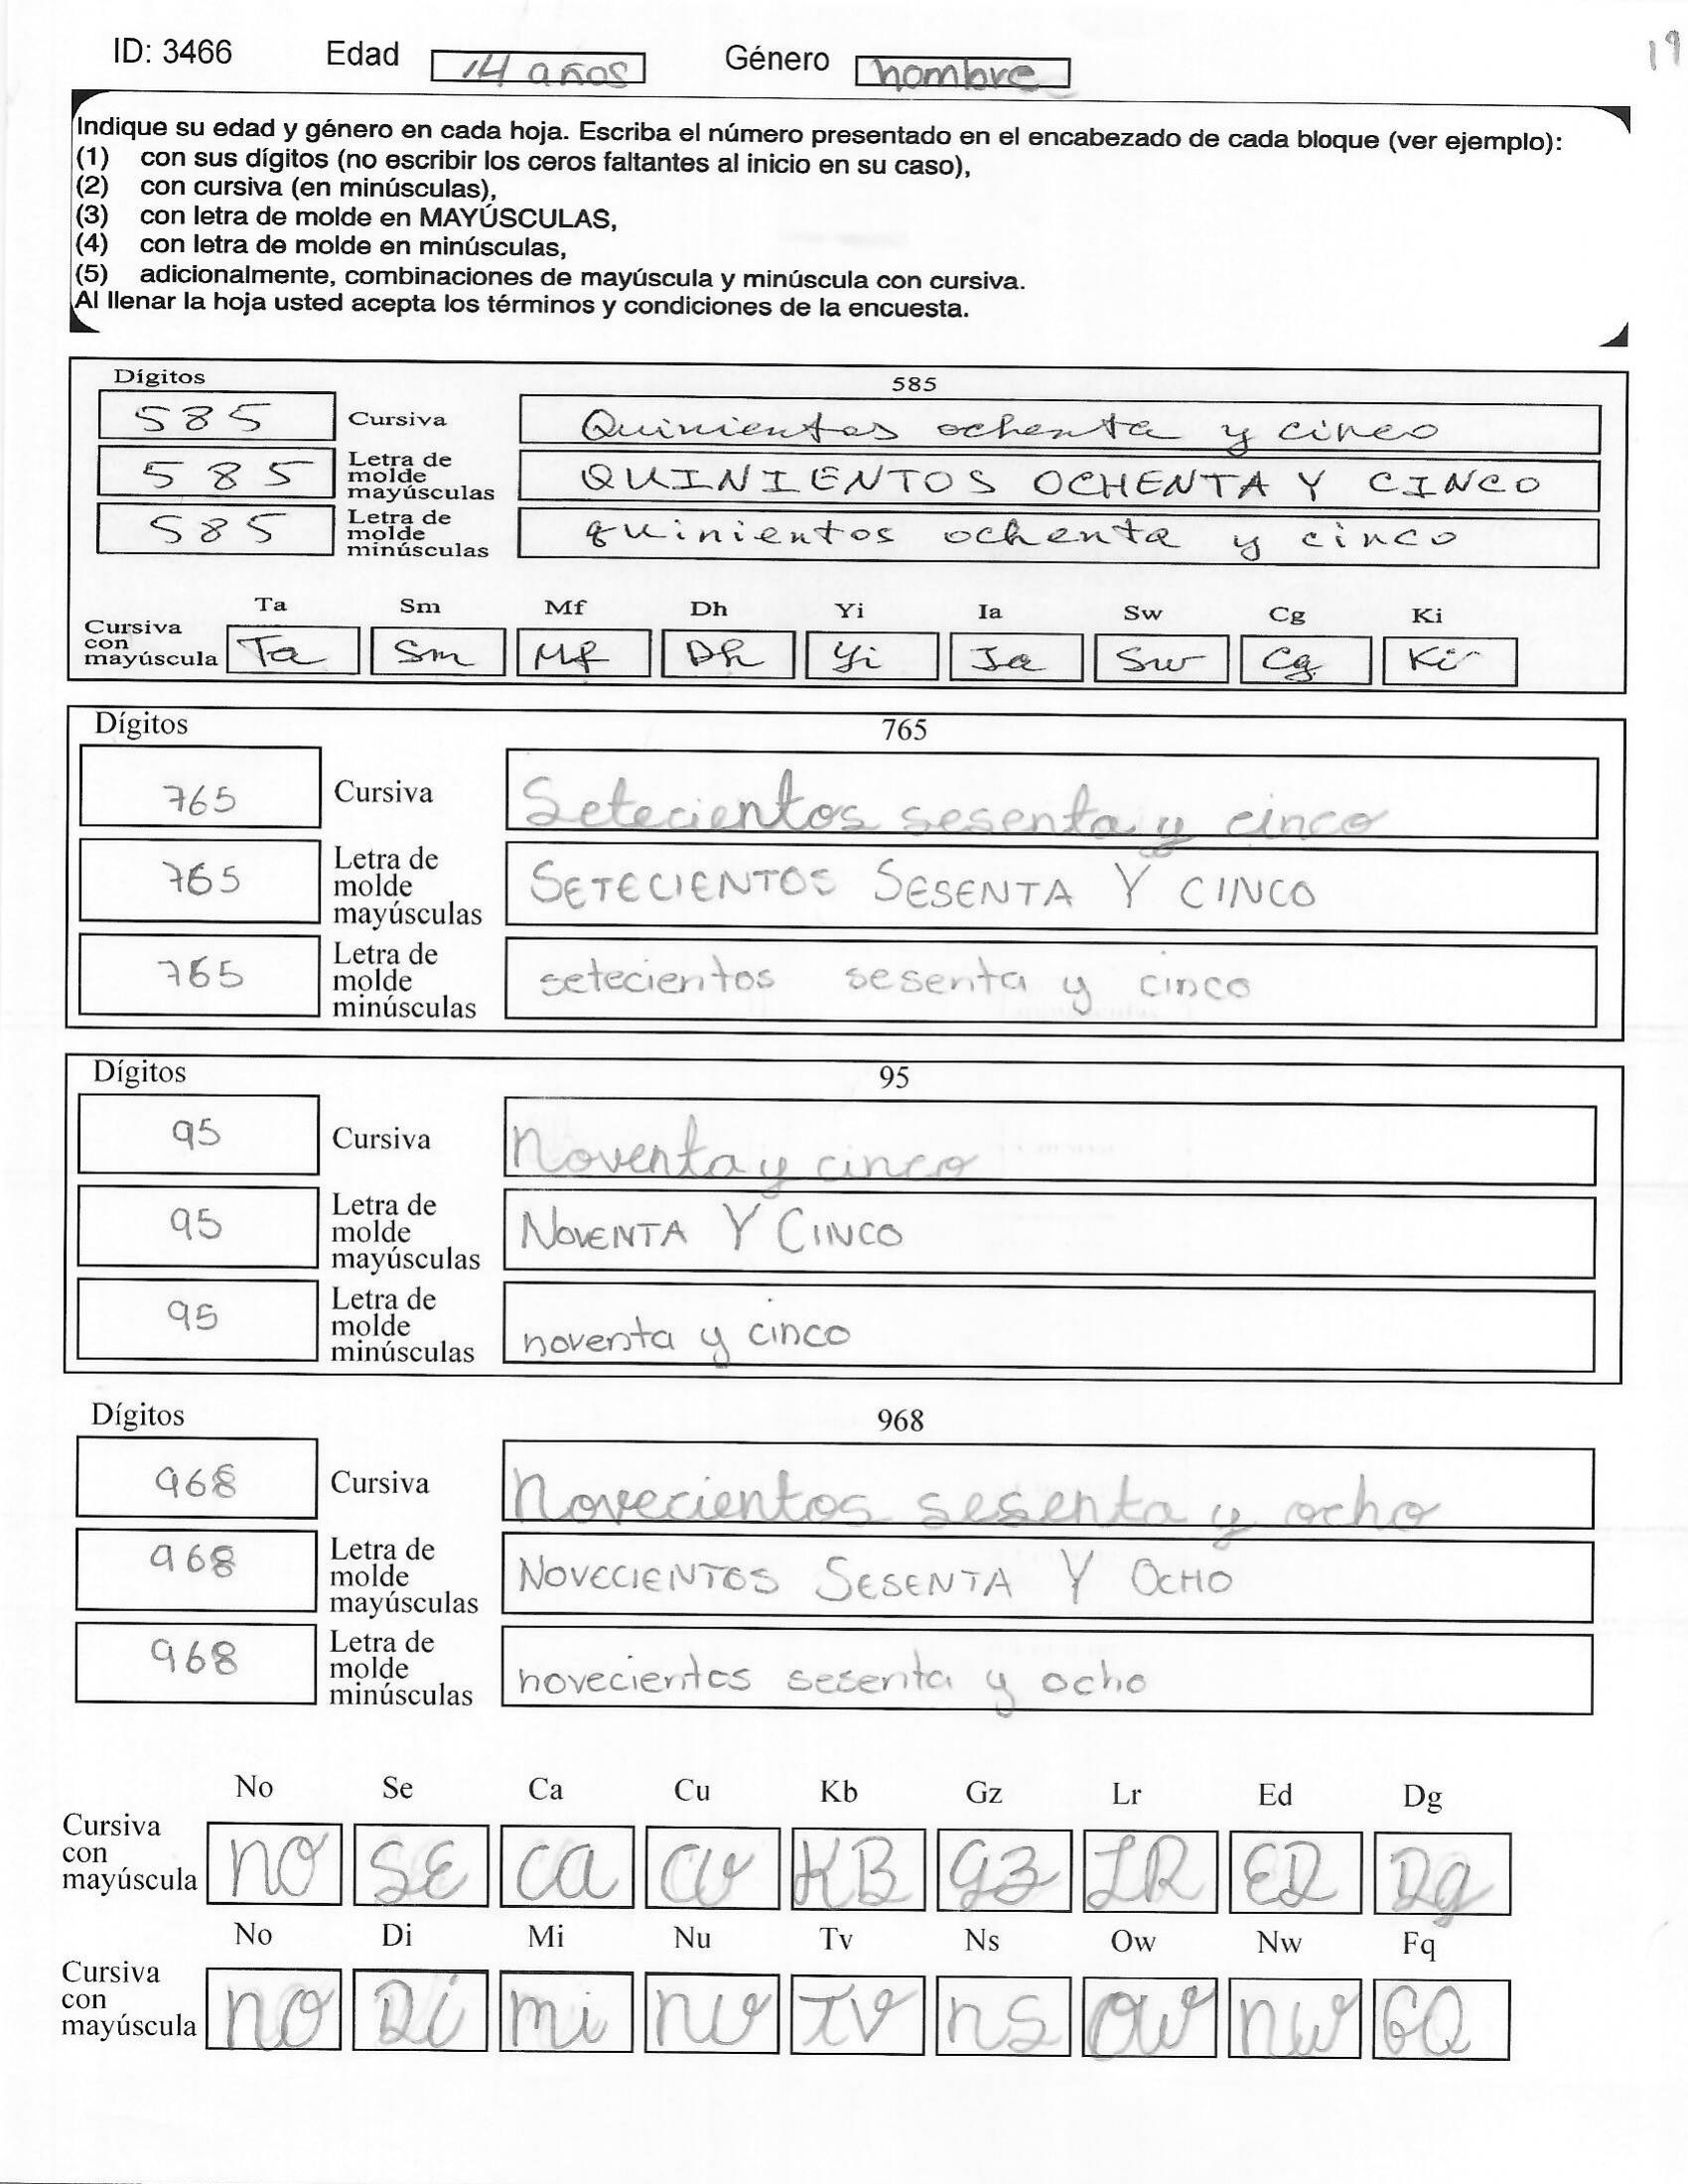 ID: 3466 Edad 14 años Género hombre 19
Indique su edad y género en cada hoja. Escriba el número presentado en el encabezado de cada bloque (ver ejemplo):
(1) con sus dígitos (no escribir los ceros faltantes al inicio en su caso),
(2) con cursiva (en minúsculas),
(3) con letra de molde en MAYÚSCULAS,
(4) con letra de molde en minúsculas,
(5) adicionalmente, combinaciones de mayúscula y minúscula con cursiva.
Al llenar la hoja usted acepta los términos y condiciones de la encuesta.
Dígitos 585
585 Cursiva Quinientos ochenta y cinco
585 Letra de molde mayúsculas QUINIENTOS OCHENTA Y CINCO
585 Letra de molde minúsculas quinientos ochenta y cinco
Ta Sm Mf Dh Yi Ia Sw Cg Ki
Cursiva con mayúscula Ta Sm Mf Dh Yi Ia Sw Cg Ki
Dígitos 765
765 Cursiva Setecientos sesenta y cinco
765 Letra de molde mayúsculas SETECIENTOS SESENTA Y CINCO
765 Letra de molde minúsculas setecientos sesenta y cinco
Dígitos 95
95 Cursiva Noventa y cinco
95 Letra de molde mayúsculas NOVENTA Y CINCO
95 Letra de molde minúsculas noventa y cinco
Dígitos 968
968 Cursiva Novecientos sesenta y ocho
968 Letra de molde mayúsculas NOVECIENTOS SESENTA Y OCHO
968 Letra de molde minúsculas novecientos sesenta y ocho
No Se Ca Cu Kb Gz Lr Ed Dg
Cursiva con mayúscula NO SE CA CU KB GZ LR ED Dg
No Di Mi Nu Tv Ns Ow Nw Fq
Cursiva con mayúscula NO Di mi NU TV nS OW NW FQ